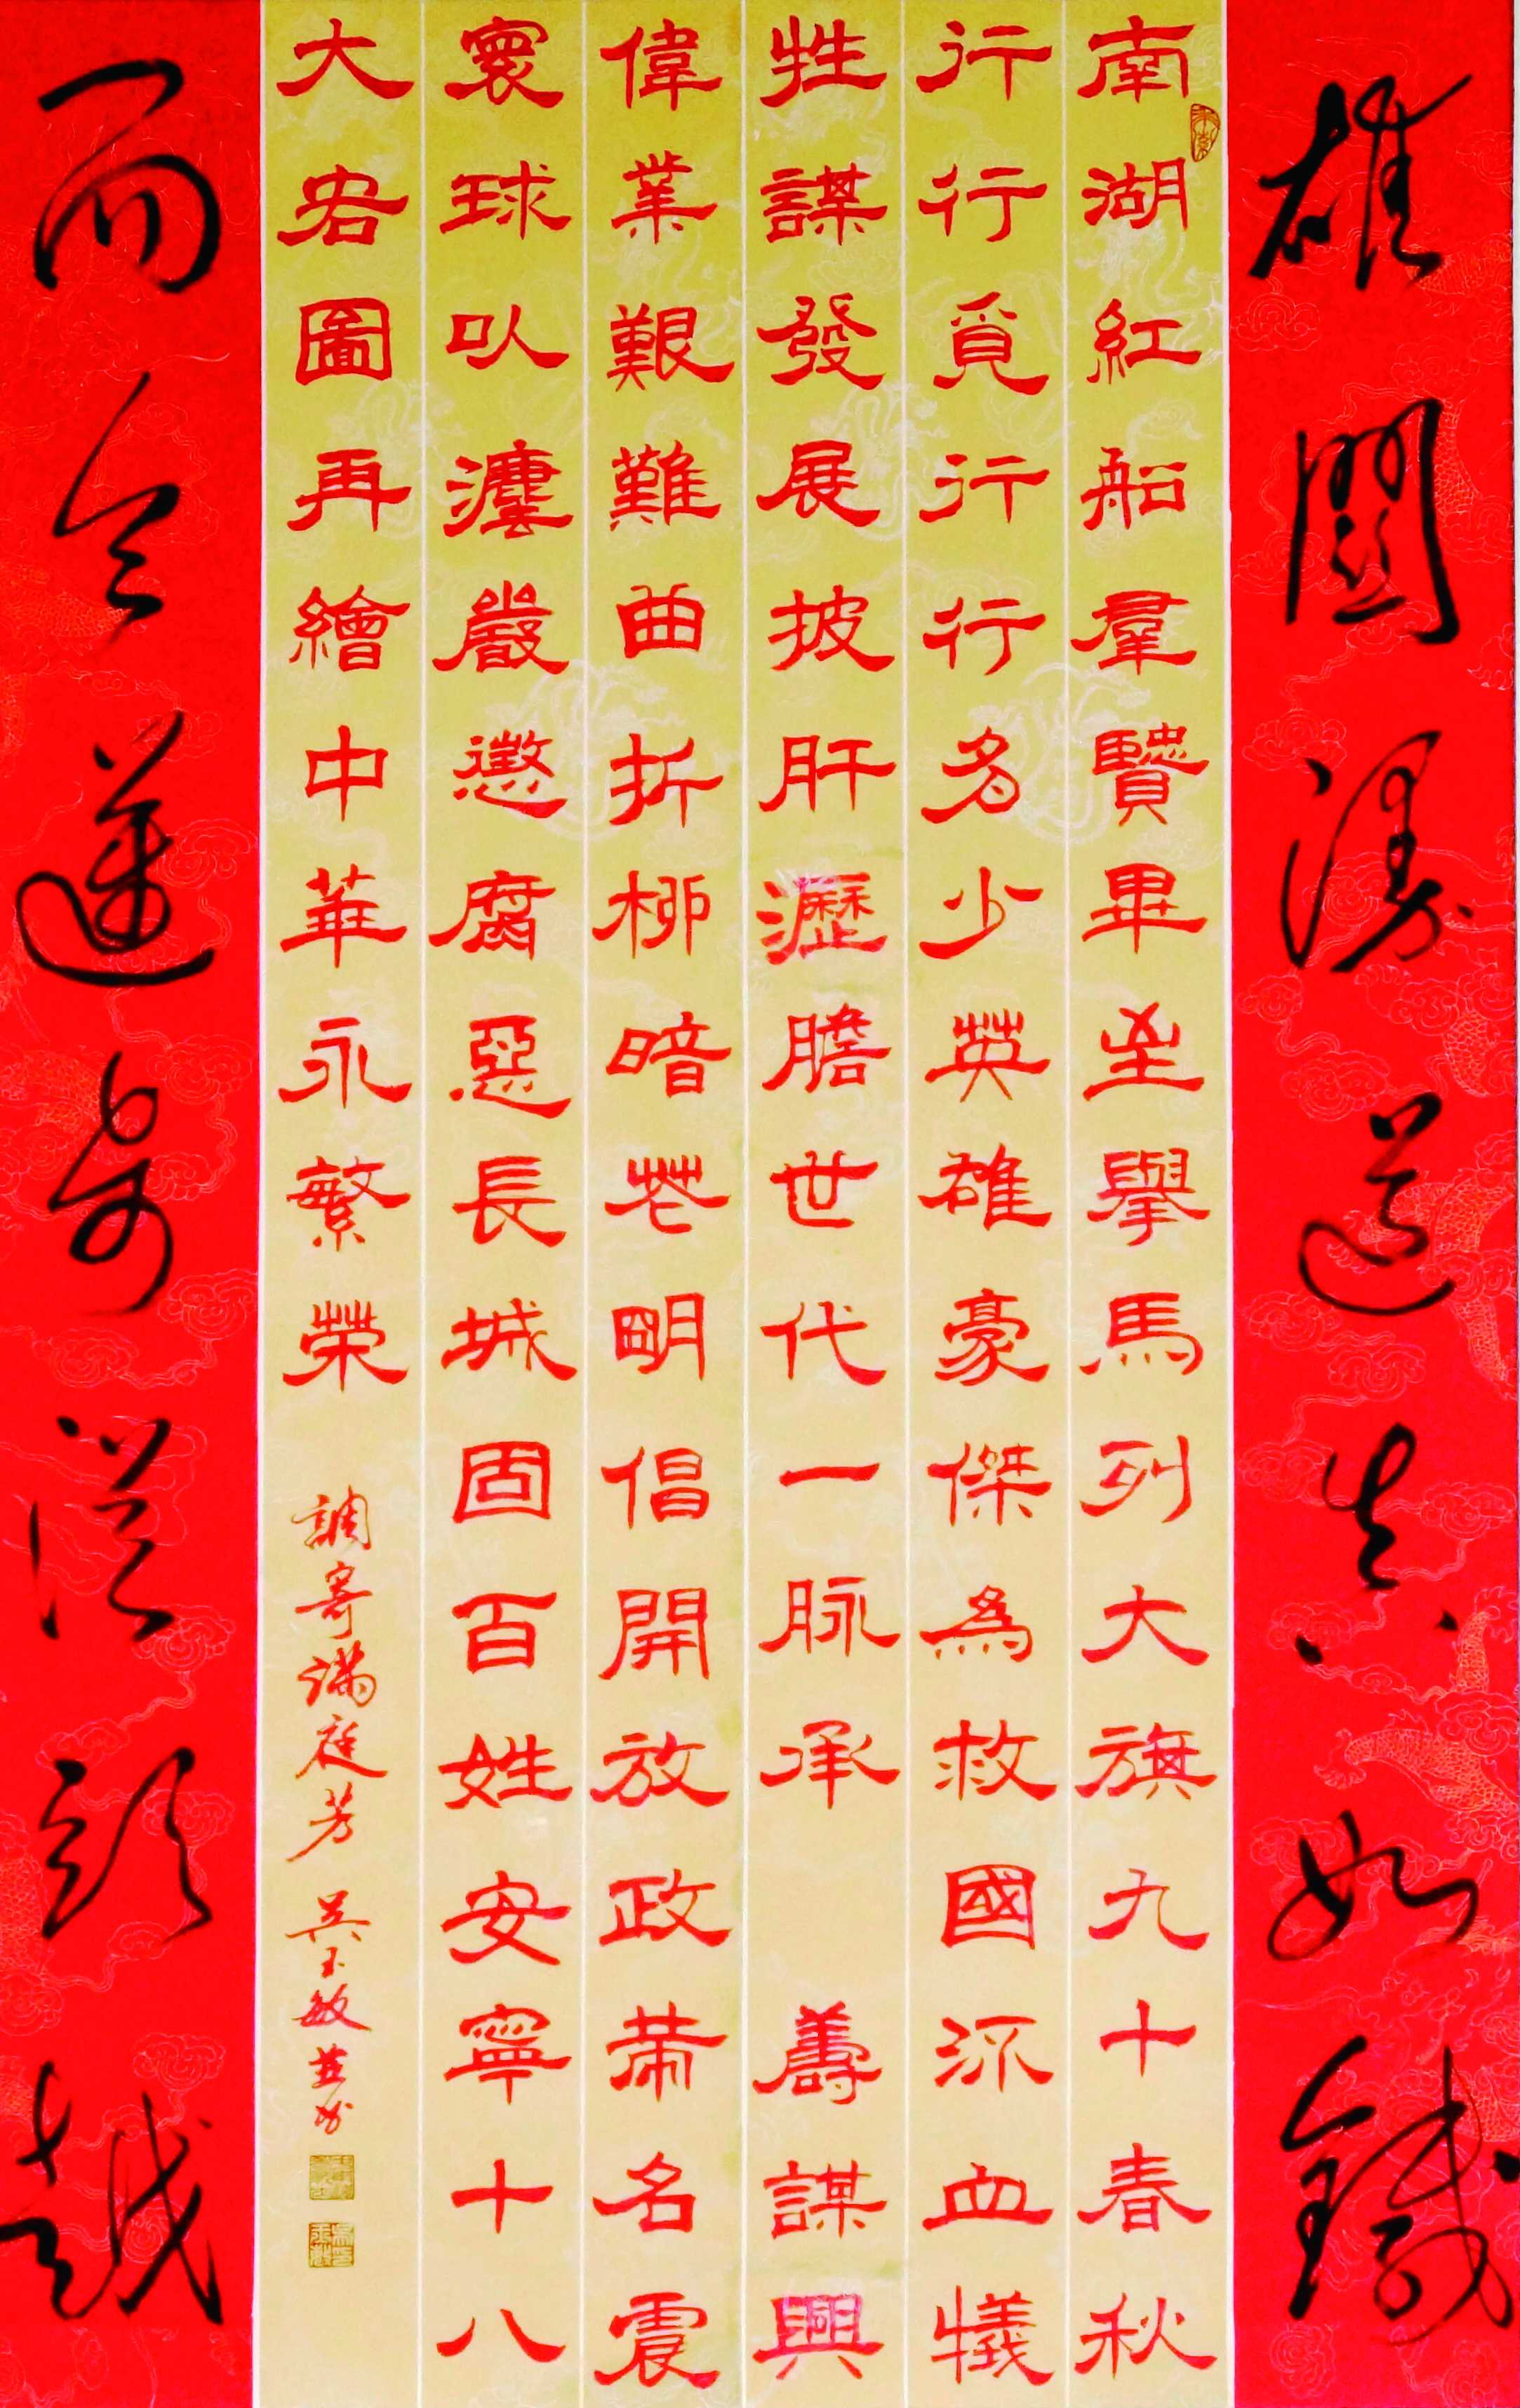 雄關漫道真如鐵
南湖紅船羣賢畢至擧馬列大旗九十春秋
行行覓行行多少英雄豪傑為救國流血犧
牲謀發展披肝瀝膽世代一脉承 籌謀興
偉業艱難曲折柳暗花明倡開放政策名震
寰球以灋嚴懲腐惡長城固百姓安寧十八
大宏圖再繪中華永繁榮
調寄滿庭芳 吳玉敏並書
而今邁步從頭越